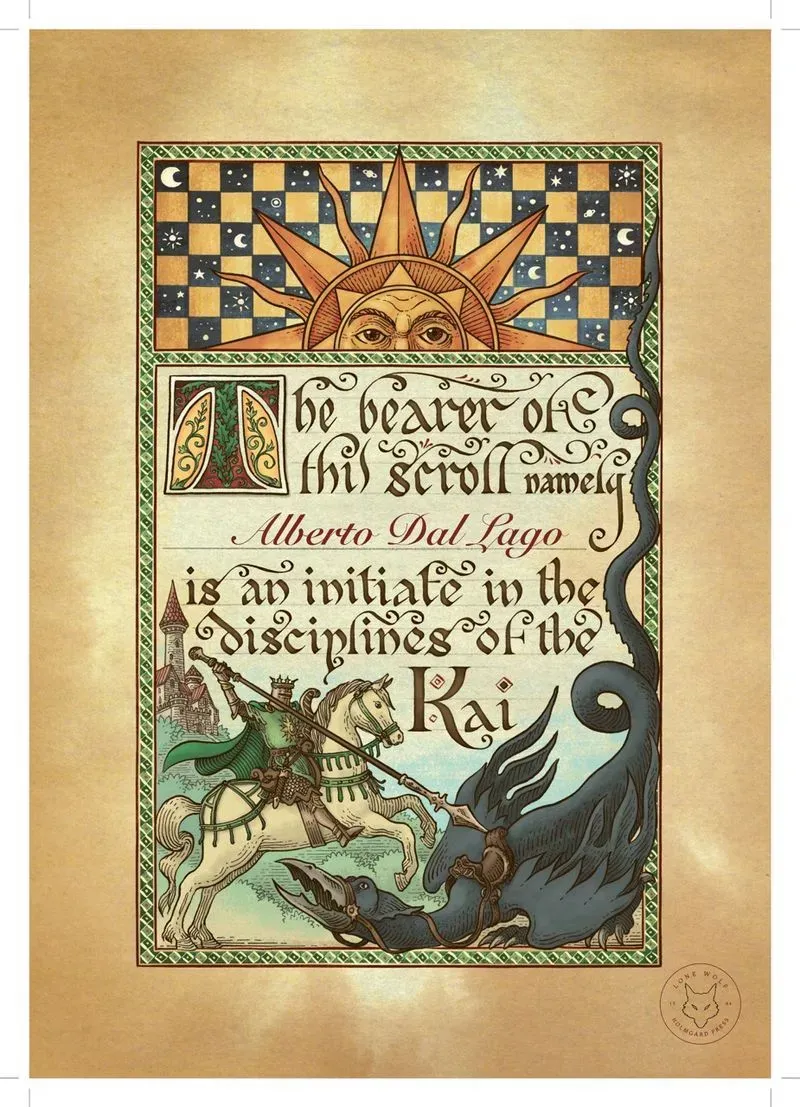 The bearer of
this scroll namely
Alberto Dal Lago
is an initiate in the
disciplines of the
Kai
LONE WOLF
19 84
HOLMGARD PRESS